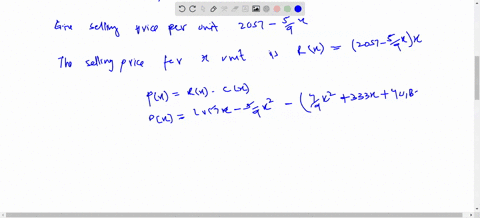 Give selling price per unit 2057 - 5/9 x
The selling price for x unit is R(x) = (2057 - 5/9 x)x
P(x) = R(x) - C(x)
P(x) = 2057x - 5/9 x² - (4/9 x² + 333x + 44,8